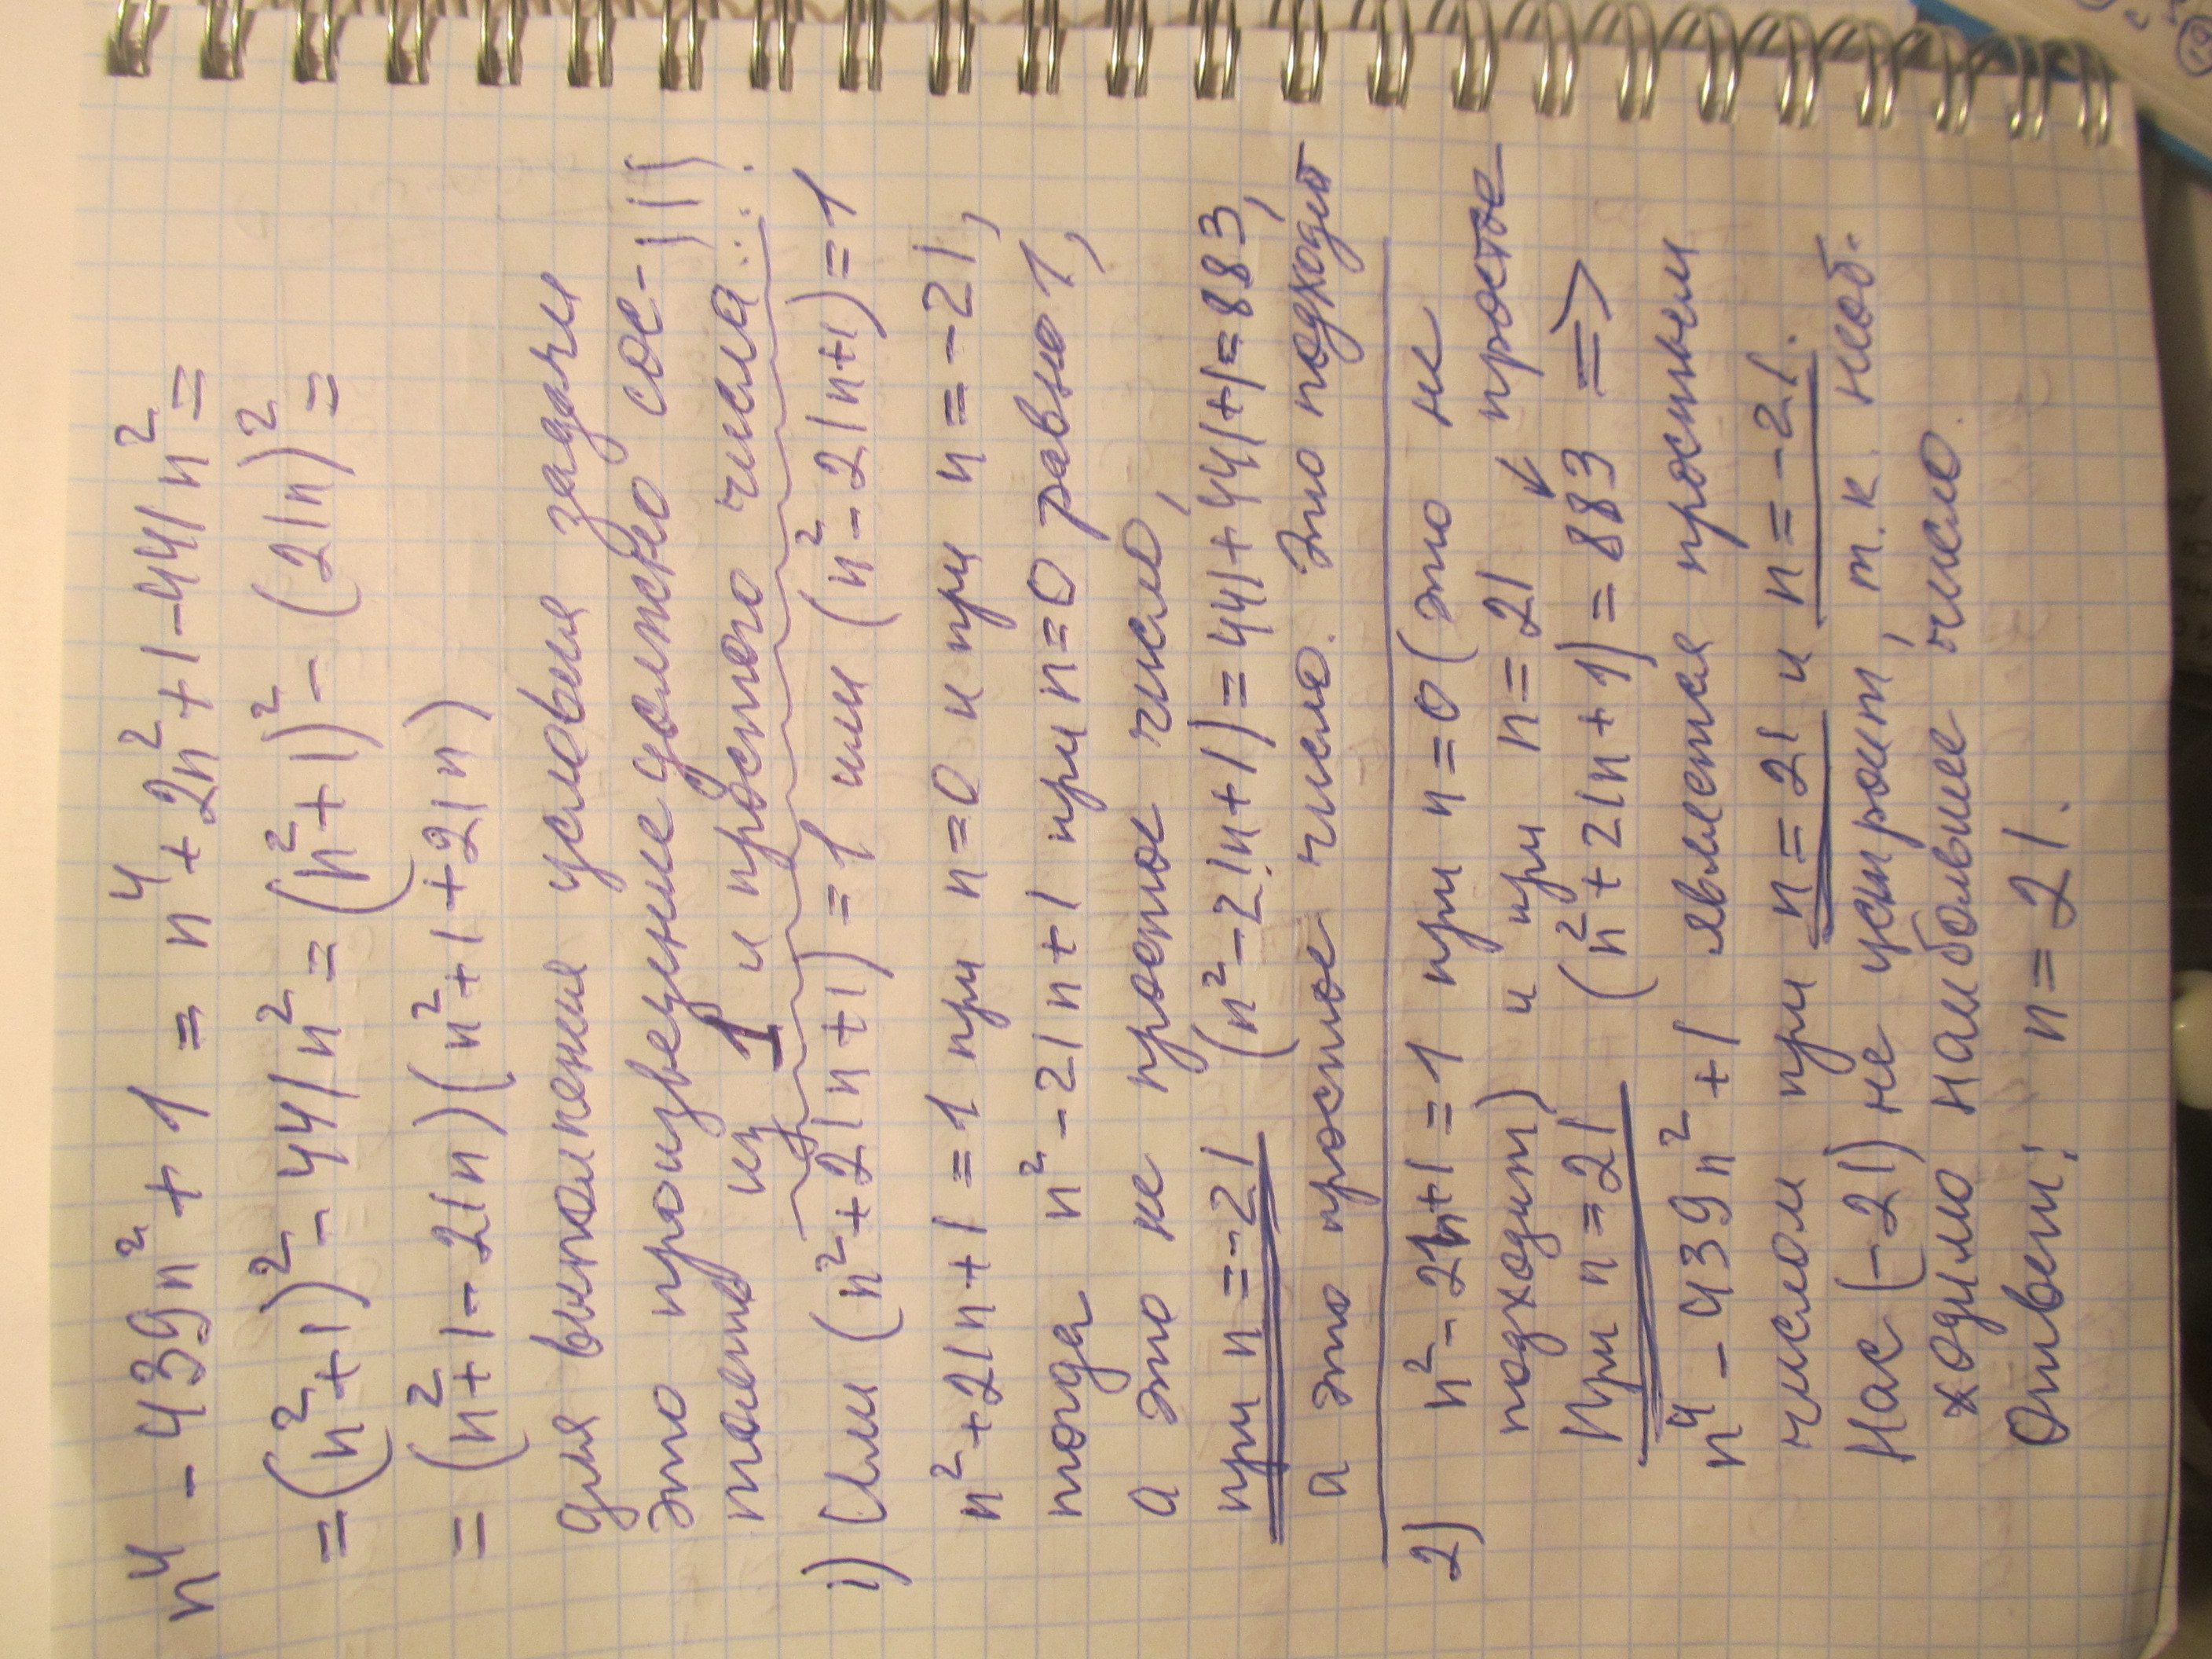 n⁴ - 439n² + 1 = n⁴ + 2n² + 1 - 441n² =
= (n² + 1)² - 441n² = (n² + 1)² - (21n)² =
= (n² + 1 - 21n)(n² + 1 + 21n)
для выполнения условия задачи
это произведение должно сос-
тоять из 1 и простого числа.
1) Или (n² + 21n + 1) = 1 или (n² - 21n + 1) = 1
n² + 21n + 1 = 1 при n = 0 и при n = -21,
тогда n² - 21n + 1 при n = 0 равно 1,
а это не простое число,
при n = -21 (n² - 21n + 1) = 441 + 441 + 1 = 883,
а это простое число. Это подходит
2) n² - 21n + 1 = 1 при n = 0 (это не
подходит) и при n = 21 простое
При n = 21 (n² + 21n + 1) = 883 =>
n⁴ - 439n² + 1 является простым
числом при n = 21 и n = -21.
Нас (-21) не устроит, т.к необ-
ходимо наибольшее число.
Ответ: n = 21.